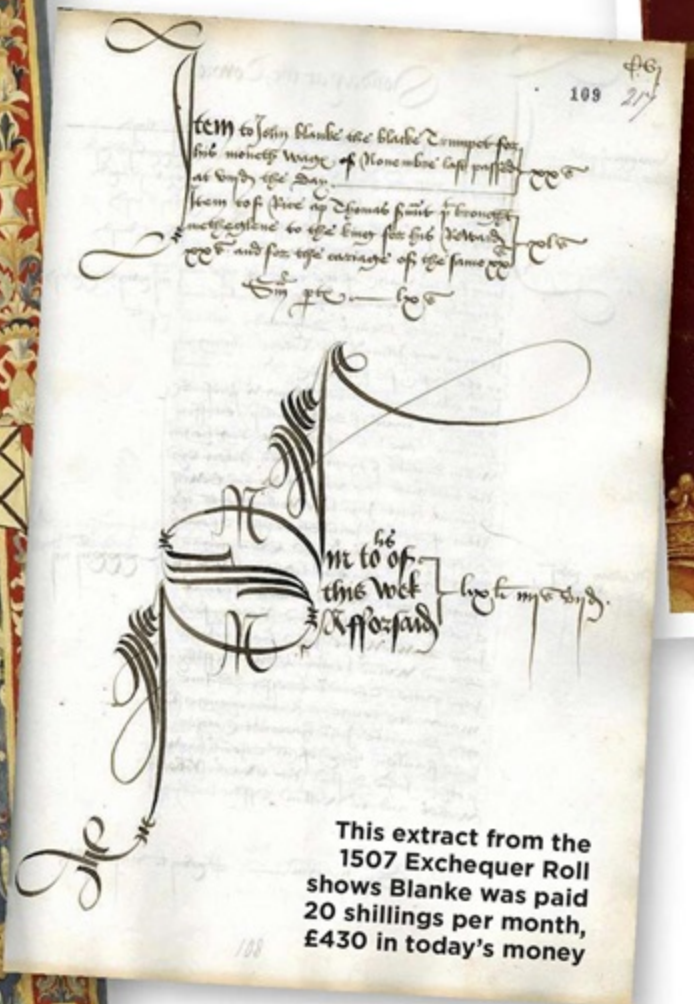 109 217
Item to John Blanke the blacke Trumpet for
his moneth wage of Novembre last passed xx s
at viijd the day
Item to Rice ap Thomas brought
metheglene to the king for his Reward xl s
xx s and for the cariage of the same xx s
lx s
to
this weke
Afforsaid
This extract from the
1507 Exchequer Roll
shows Blanke was paid
20 shillings per month,
£430 in today's money
108